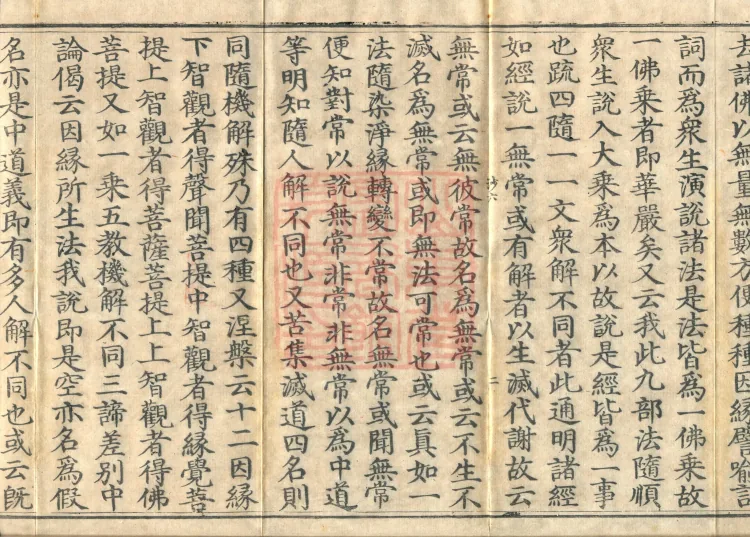 去諸佛以無量無數方便種種因緣譬喻言
詞而為衆生演說諸法是法皆為一佛乘故
一佛乘者即華嚴矣又云我此九部法隨順
衆生說入大乘為本以故說是經皆為一事
也疏四隨一一文衆解不同者此通明諸經
如經說一無常或有解者以生滅代謝故云
抄六
二
無常或云無彼常故名為無常或云不生不
滅名為無常或即無法可常也或云真如一
法隨染淨緣轉變不常故名無常或聞無常
便知對常以說無常非常非無常以為中道
等明知隨人解不同也又苦集滅道四名則
同隨機解殊乃有四種又涅槃云十二因緣
下智觀者得聲聞菩提中智觀者得緣覺菩
提上智觀者得菩薩菩提上上智觀者得佛
菩提又如一乘五教機解不同三諦差別中
論偈云因緣所生法我說即是空亦名為假
名亦是中道義即有多人解不同也或云既